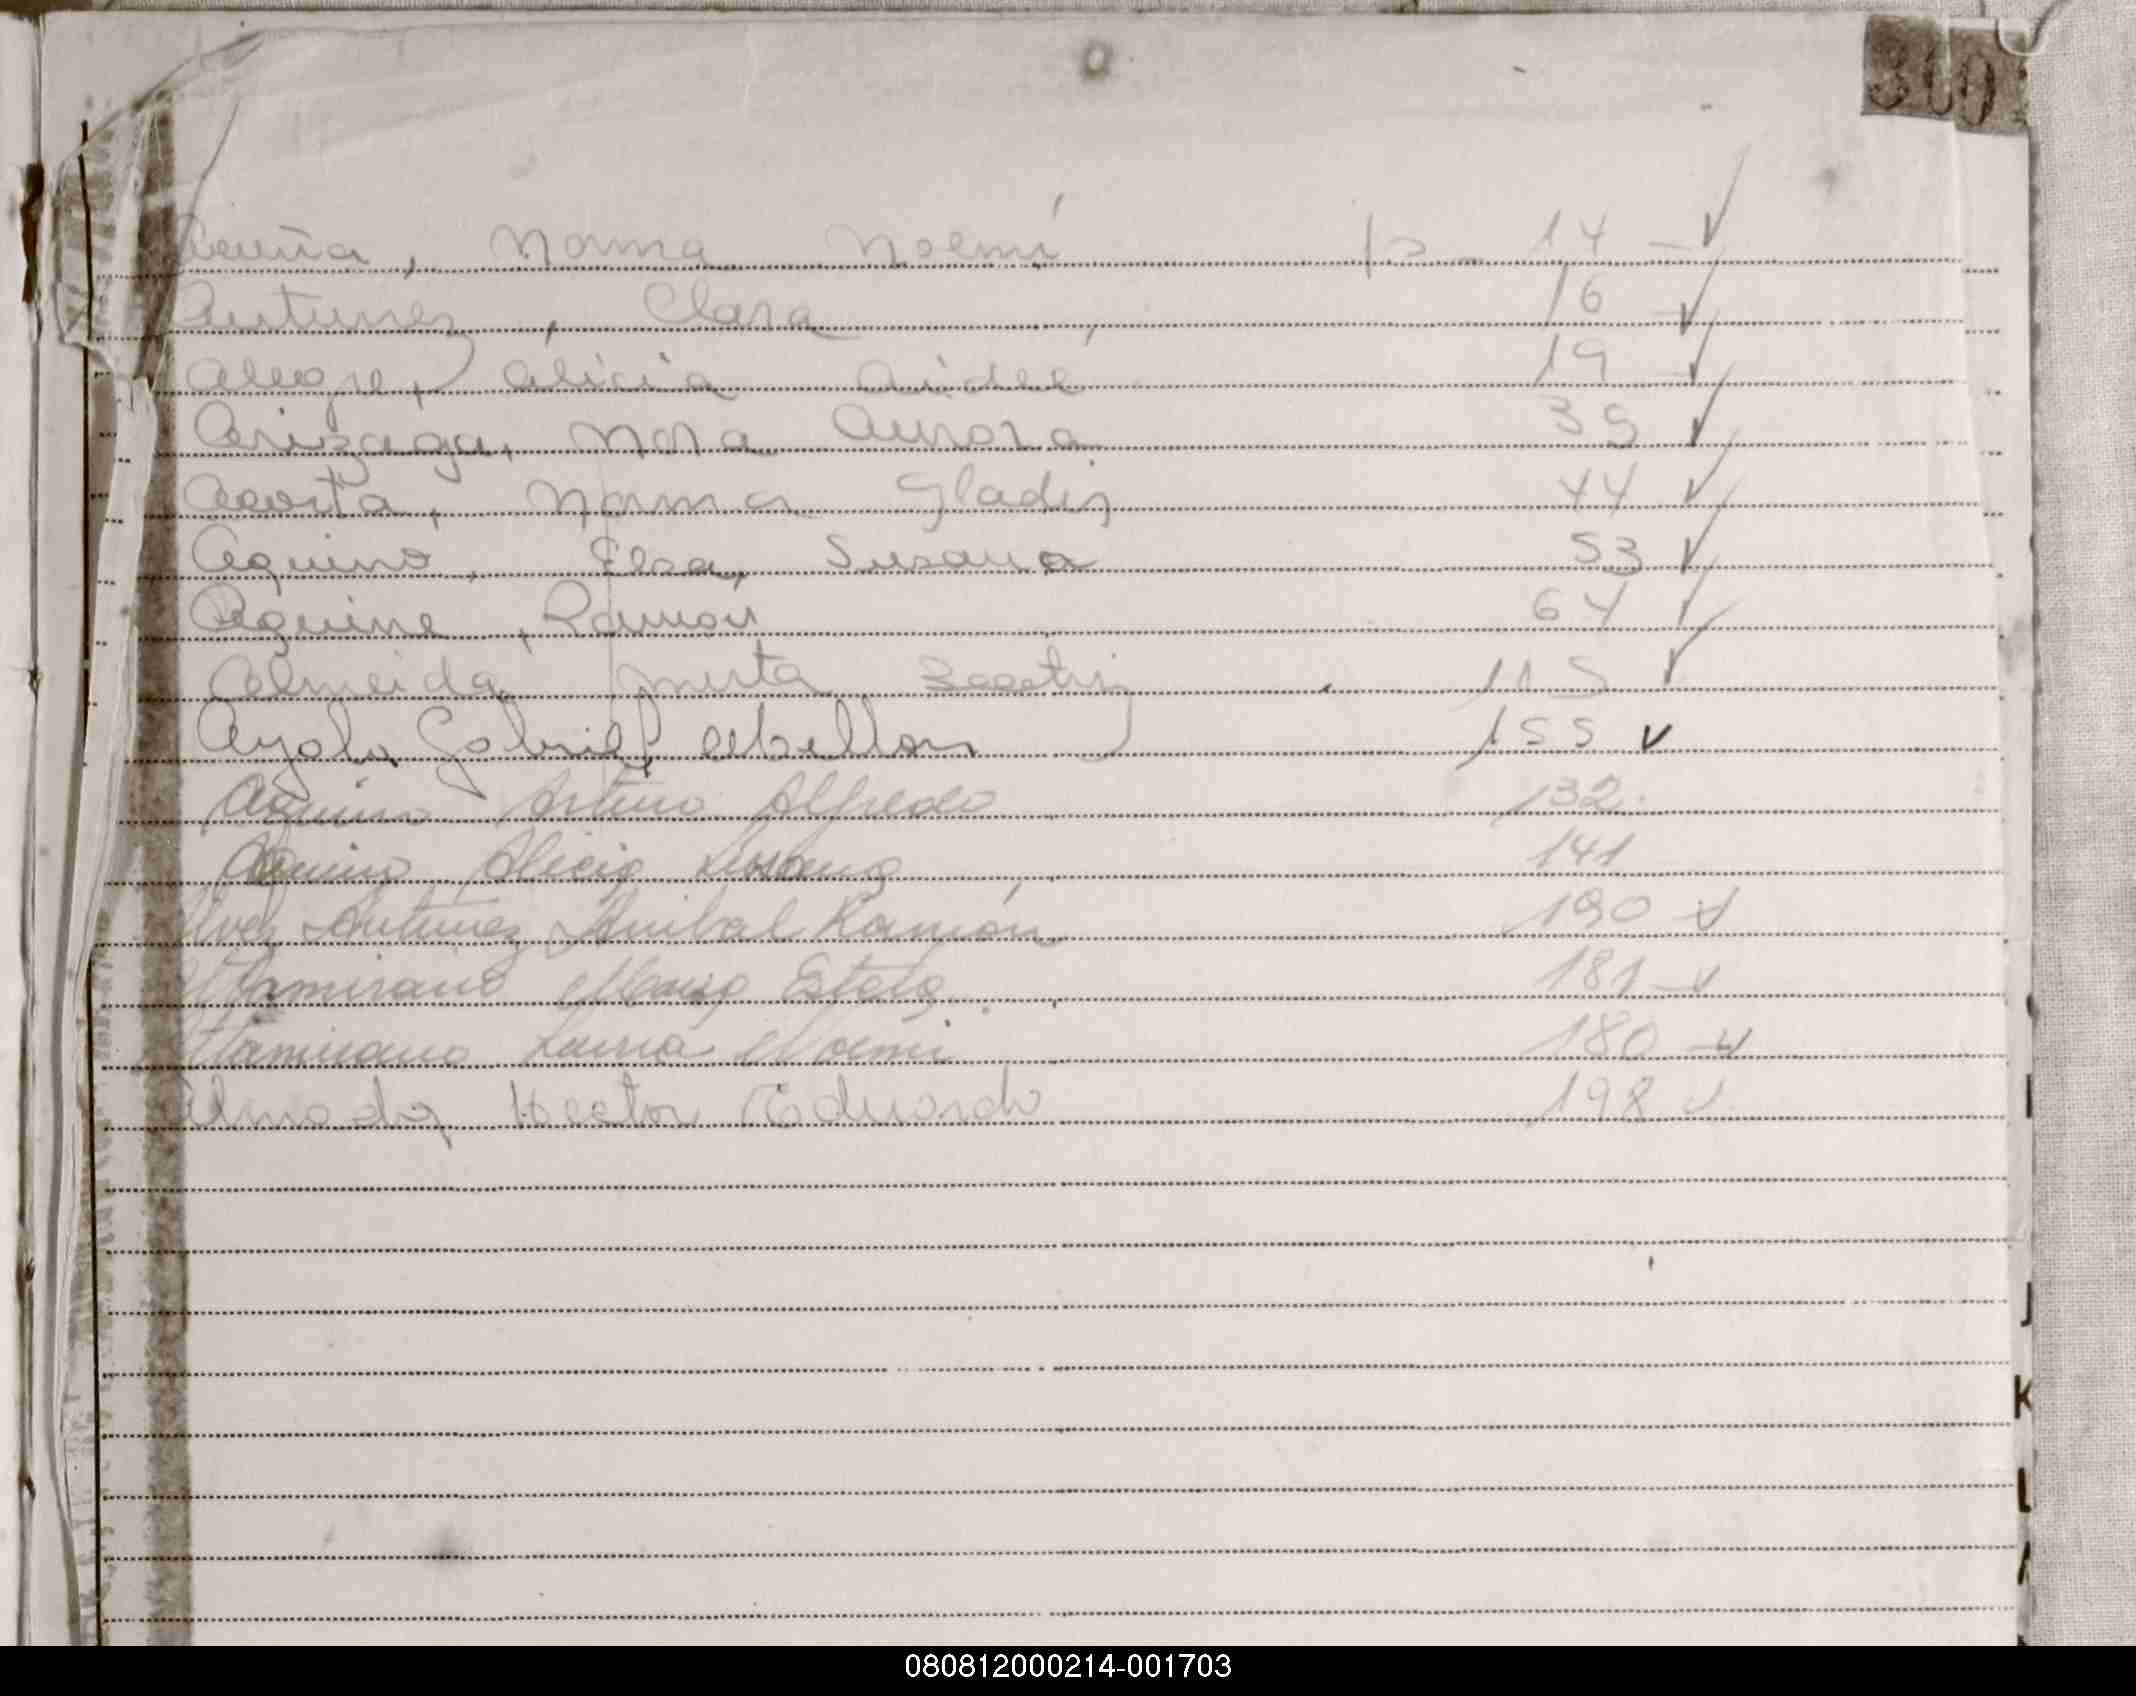 300
Acuña, Norma Noemí 14
Antunez, Clara 16
Alegre, Alicia Aidee 19
Arizaga, Nora Aurora 39
Acosta, Norma Gladis 44
Aquino, Elsa, Susana 53
Aquino, Ramón 64
Almeida, Mirta Beatriz 115
Ayala, Gabriel 155
Aquino Arturo Alfredo 132
Aquino Alicia Susana 141
Alvez Antunez Anibal Ramón 190
Altamirano Estela 181
Altamirano Laura Noemi 180
Almada Hector Eduardo 198
J
K
L
080812000214-001703